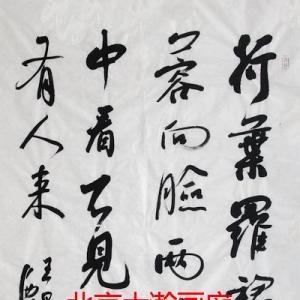 荷葉羅裙
蓉向臉兩
中看不見
有人来
北京大瀚画廊